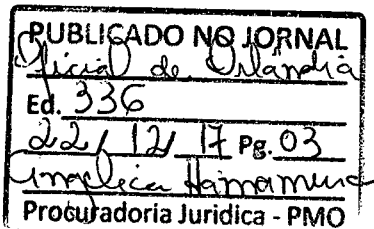 PUBLICADO NO JORNAL
Oficial de Orlândia
Ed. 336
22/12/17 Pg. 03
Angelica Hamamura
Procuradoria Juridica - PMO